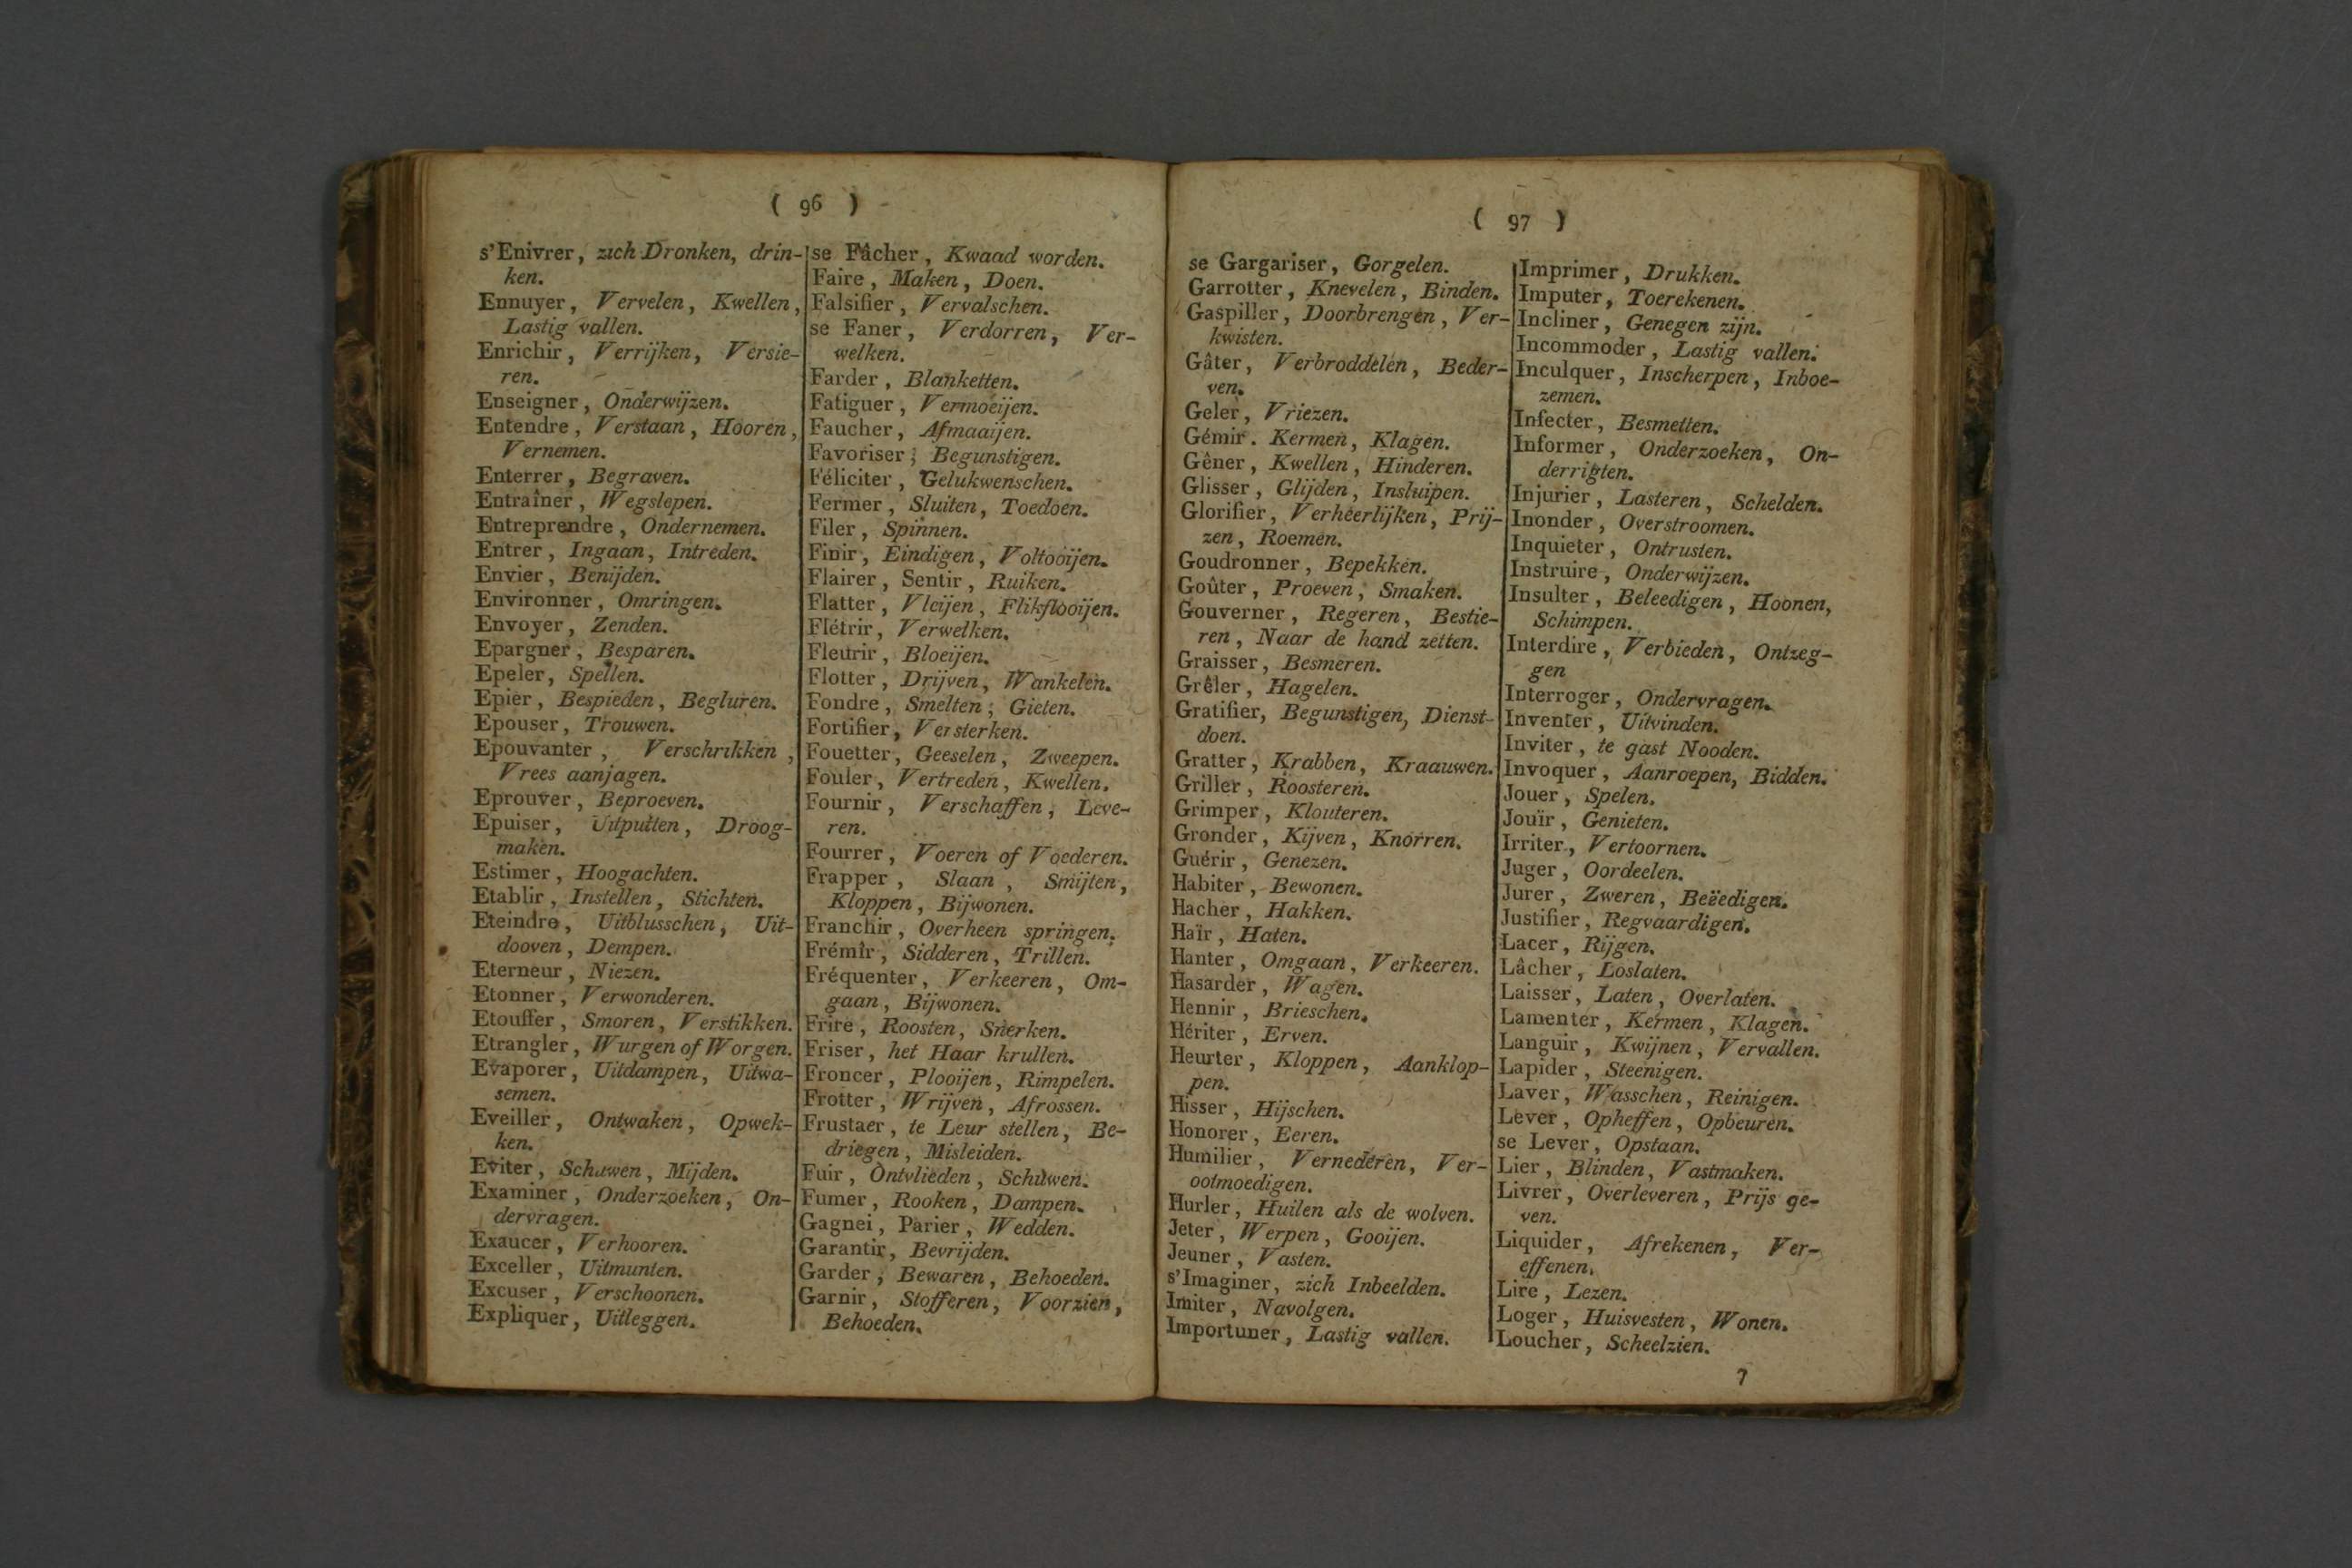 ( 96 )
s'Enivrer, zich Dronken, drin-
ken.
Ennuyer, Vervelen, Kwellen,
Lastig vallen.
Enrichir, Verrijken, Versie-
ren.
Enseigner, Onderwijzen.
Entendre, Verstaan, Hooren,
Vernemen.
Enterrer, Begraven.
Entraîner, Wegslepen.
Entreprendre, Ondernemen.
Entrer, Ingaan, Intreden.
Envier, Benijden.
Environner, Omringen.
Envoyer, Zenden.
Epargner, Besparen.
Epeler, Spellen.
Epier, Bespieden, Begluren.
Epouser, Trouwen.
Epouvanter, Verschrikken,
Vrees aanjagen.
Eprouver, Beproeven.
Epuiser, Uitputten, Droog-
maken.
Estimer, Hoogachten.
Etablir, Instellen, Stichten.
Eteindre, Uitblusschen, Uit-
dooven, Dempen.
Eterneur, Niezen.
Etonner, Verwonderen.
Etouffer, Smoren, Verstikken.
Etrangler, Wurgen of Worgen.
Evaporer, Uitdampen, Uitwa-
semen.
Eveiller, Ontwaken, Opwek-
ken.
Eviter, Schuwen, Mijden.
Examiner, Onderzoeken, On-
dervragen.
Exaucer, Verhooren.
Exceller, Uitmunten.
Excuser, Verschoonen.
Expliquer, Uitleggen.
se Fâcher, Kwaad worden.
Faire, Maken, Doen.
Falsifier, Vervalschen.
se Faner, Verdorren, Ver-
welken.
Farder, Blanketten.
Fatiguer, Vermoeijen.
Faucher, Afmaaijen.
Favoriser, Begunstigen.
Féliciter, Gelukwenschen.
Fermer, Sluiten, Toedoen.
Filer, Spinnen.
Finir, Eindigen, Voltooijen.
Flairer, Sentir, Ruiken.
Flatter, Vleijen, Flikflooijen.
Flétrir, Verwelken.
Fleurir, Bloeijen.
Flotter, Drijven, Wankelen.
Fondre, Smelten, Gieten.
Fortifier, Versterken.
Fouetter, Geeselen, Zweepen.
Fouler, Vertreden, Kwellen.
Fournir, Verschaffen, Leve-
ren.
Fourrer, Voeren of Voederen.
Frapper, Slaan, Smijten,
Kloppen, Bijwonen.
Franchir, Overheen springen.
Frémir, Sidderen, Trillen.
Fréquenter, Verkeeren, Om-
gaan, Bijwonen.
Frire, Roosten, Snerken.
Friser, het Haar krullen.
Froncer, Plooijen, Rimpelen.
Frotter, Wrijven, Afrossen.
Frustaer, te Leur stellen, Be-
driegen, Misleiden.
Fuir, Ontvlieden, Schuwen.
Fumer, Rooken, Dampen.
Gagnei, Parier, Wedden.
Garantir, Bevrijden.
Garder, Bewaren, Behoeden.
Garnir, Stofferen, Voorzien,
Behoeden.
( 97 )
se Gargariser, Gorgelen.
Garrotter, Knevelen, Binden.
Gaspiller, Doorbrengen, Ver-
kwisten.
Gâter, Verbroddelen, Beder-
ven.
Geler, Vriezen.
Gémir. Kermen, Klagen.
Gêner, Kwellen, Hinderen.
Glisser, Glijden, Insluipen.
Glorifier, Verheerlijken, Prij-
zen, Roemen.
Goudronner, Bepekken.
Goûter, Proeven, Smaken.
Gouverner, Regeren, Bestie-
ren, Naar de hand zetten.
Graisser, Besmeren.
Grêler, Hagelen.
Gratifier, Begunstigen, Dienst-
doen.
Gratter, Krabben, Kraauwen.
Griller, Roosteren.
Grimper, Klouteren.
Gronder, Kijven, Knorren.
Guérir, Genezen.
Habiter, Bewonen.
Hacher, Hakken.
Haïr, Haten.
Hanter, Omgaan, Verkeeren.
Hasarder, Wagen.
Hennir, Brieschen.
Hériter, Erven.
Heurter, Kloppen, Aanklop-
pen.
Hisser, Hijschen.
Honorer, Eeren.
Humilier, Vernederen, Ver-
ootmoedigen.
Hurler, Huilen als de wolven.
Jeter, Werpen, Gooijen.
Jeuner, Vasten.
s'Imaginer, zich Inbeelden.
Imiter, Navolgen.
Importuner, Lastig vallen.
Imprimer, Drukken.
Imputer, Toerekenen.
Incliner, Genegen zijn.
Incommoder, Lastig vallen.
Inculquer, Inscherpen, Inboe-
zemen.
Infecter, Besmetten.
Informer, Onderzoeken, On-
derrigten.
Injurier, Lasteren, Schelden.
Inonder, Overstroomen.
Inquieter, Ontrusten.
Instruire, Onderwijzen.
Insulter, Beleedigen, Hoonen,
Schimpen.
Interdire, Verbieden, Ontzeg-
gen
Interroger, Ondervragen.
Inventer, Uitvinden.
Inviter, te gast Nooden.
Invoquer, Aanroepen, Bidden.
Jouer, Spelen.
Jouïr, Genieten.
Irriter, Vertoornen.
Juger, Oordeelen.
Jurer, Zweren, Beëedigen.
Justifier, Regvaardigen.
Lacer, Rijgen.
Lâcher, Loslaten.
Laisser, Laten, Overlaten.
Lamenter, Kermen, Klagen.
Languir, Kwijnen, Vervallen.
Lapider, Steenigen.
Laver, Wasschen, Reinigen.
Lever, Opheffen, Opbeuren.
se Lever, Opstaan.
Lier, Blinden, Vastmaken.
Livrer, Overleveren, Prijs ge-
ven.
Liquider, Afrekenen, Ver-
effenen.
Lire, Lezen.
Loger, Huisvesten, Wonen.
Loucher, Scheelzien.
7